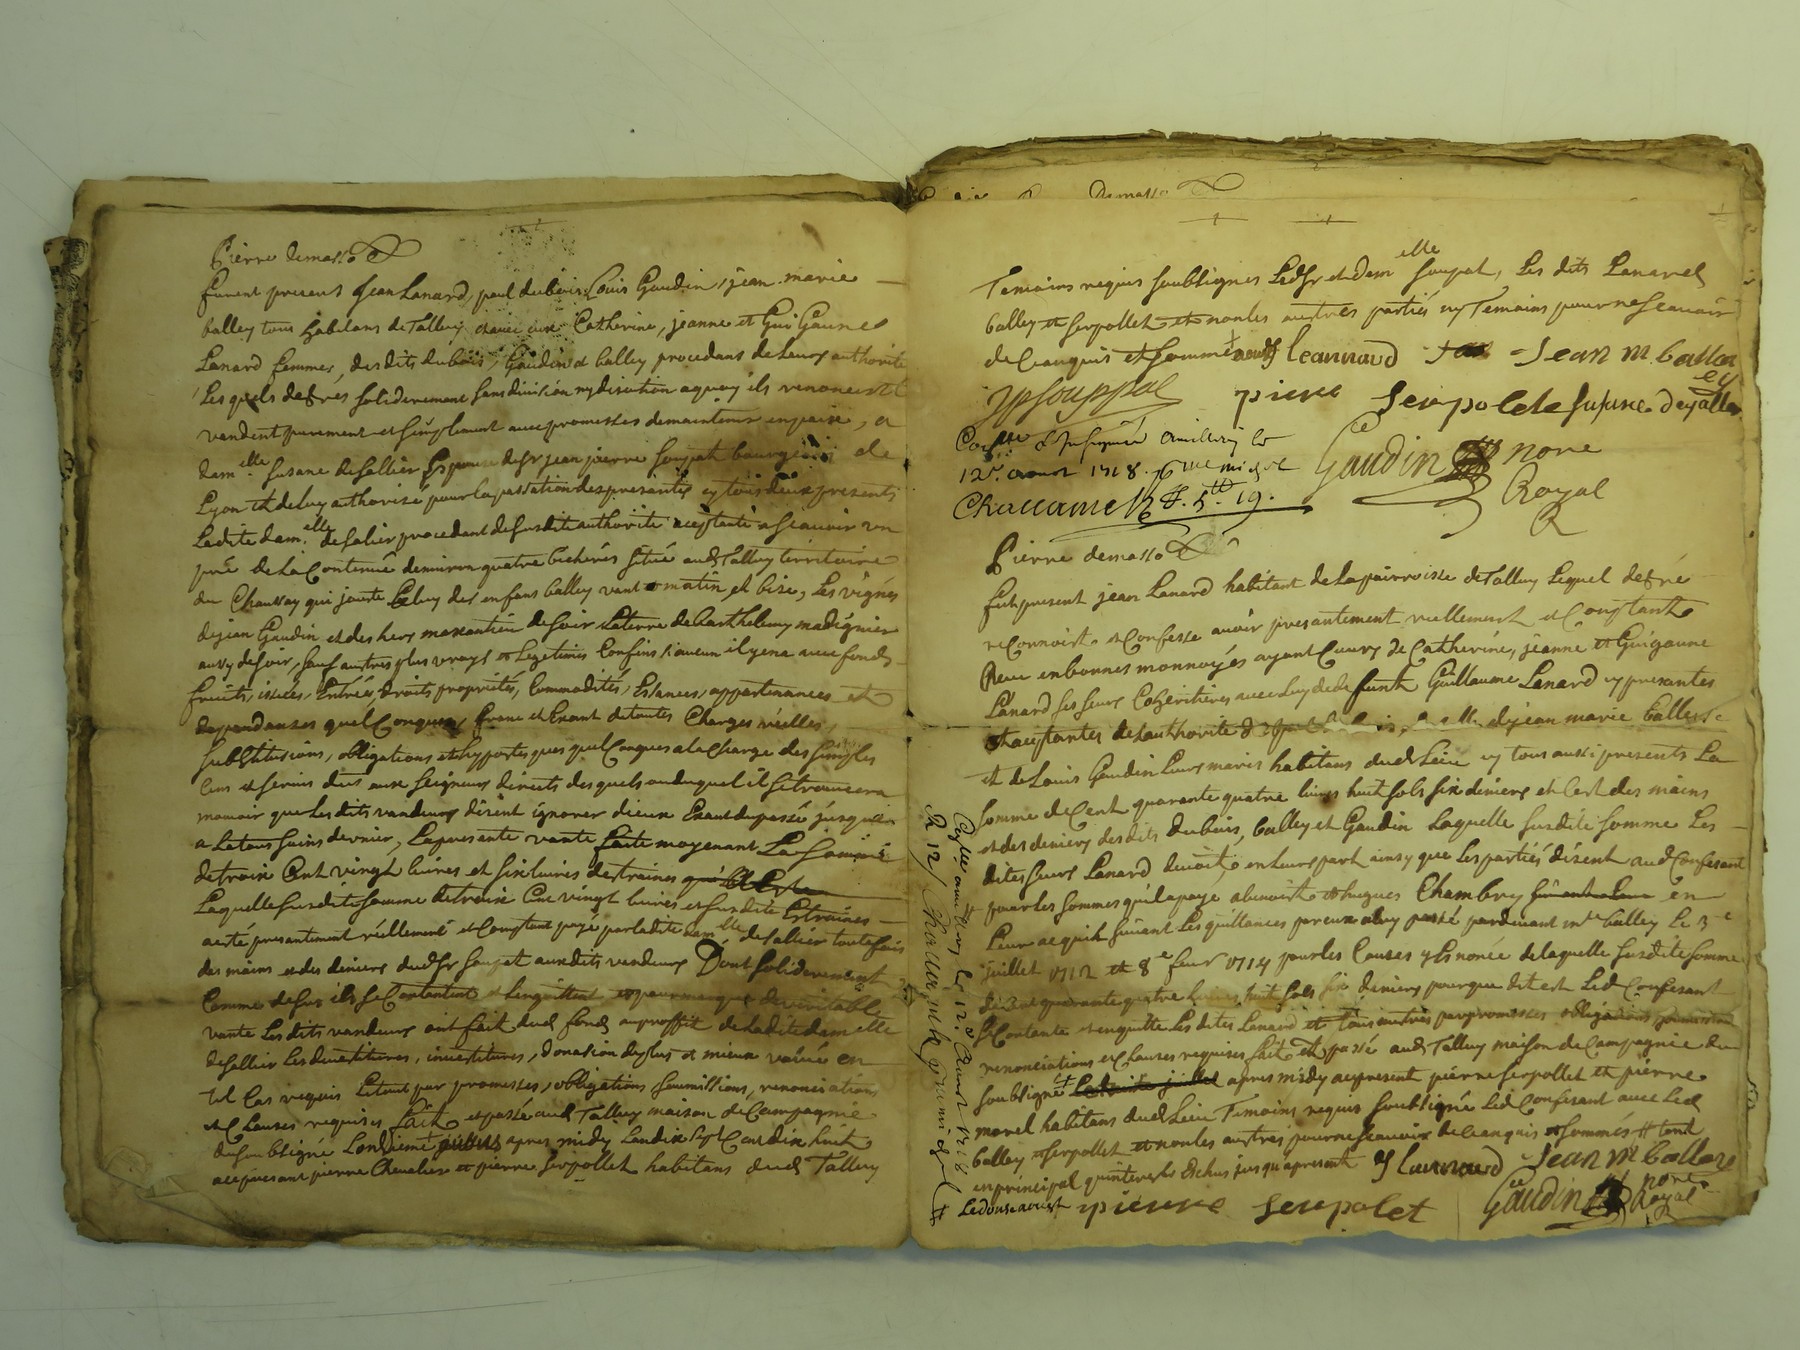 Pierre demasso
furent presens Jean Lanard, paul dubois, Louis Gaudin, jean marie
balley tous habitans de Talluy, avec eux Catherine, jeanne et Guigaune
Lanard femmes, desdits dubois, Gaudin et balley procedans de leurs authorité
Lesquels de grés soliderement sans division ny discution aquoy ils renoncent
vendent purement et simplement avec promesses de maintenir en paix, a
damelle Susane desallier Espouse de sr jean pierre soupat bourgeois de
Lyon et deluy authorisé pour la passation des presantes cy tous deux presents
Ladite damelle desalier procedant de susdite authorité aceptante a scavoir un
pré de la Contenue denviron quatre bicherés situé aud Talluy territoire
du Chauvay qui jouxte Celuy des enfans balley vent matin, et bize, Les vignes
de jean Gaudin et des hers de soir La terre de Barthelemy madignier
aussy de soir, sauf autres plus vrays et Legitimes Confins si aucun il y en a avec fonds
fruits, issües, Entrées, droits proprietés, Commodités, Esances, appartenances et
dependances quelConques franc et Exant de toutes Charges réelles,
substitutions, obligations et hyppoteques quelConques a la Charge des simples
Cens et servis dus aux seigneurs directs desquels ou duquel il se trouvera
mouvoir que lesdits vendeurs dirent ignorer d'iceux Exant du passé jusques
a La toussaints dernier, La presante vante faite moyenant La somme
de trois Cent vingt livres et six livres destraines
Laquelle susdite somme de trois Cent vingt livres et susdite Estraines
a esté presantement réellement et Comptant payé par ladite damelle desallier toutefois
des mains et des deniers dudsr soupat auxdits vendeurs Dont soliderement
Comme dessus ils se Contentent et L'enquittent et pour marque de veritable
vante Lesdits vandeurs ont fait dud fond au proffit de ladite damelle
desallier Les devestitures, investitures, donation du plus et mieux value en
tel Cas requis Et tout par promesses, obligations soumissions, renonciations
et Clauses requises fait et passé aud Talluy maison de Campagne
du soubsigné Lonzieme apres midy Landix sept Cent dix huit
acepresant pierre Chevalier et pierre serpollet habitans dud Talluy
Demasso
Temoins requis soubsignes Ledsr et damelle soupat, Lesdits Lanard
balley et serpollet et non les austres partiés ny Temoins pour ne scavoir
de Cenquis et sommés Leannard Jean M balla
ey
JPSouppat pierre Serpolet Susanne desallier
Conlle & Insignué amillery le
12e aoust 1718.
Chaccame R 8. 5tt 19.
Gaudin none
Royal
Pierre demasso
fut present jean Lanard habitant de la parroisse de Talluy Lequel de gré
reConnoist et Confesse avoir presantement reellement et Comptant
Receu en bonnes monnoyés ayant Cours de Catherine, jeanne et Guigaune
Lanard ses seurs Coheritieres avec Luy de defunt Guillaume Lanard cy presantes
et aceptantes de l'authorité de jean marie balley
et de Louis Gaudin Leurs maris habitans dud Lieu cy tous aussi presents La
somme de Cent quarante quatre livres huit sols six deniers et C'est des mains
et des deniers desdits Dubois, balley et Gaudin Laquelle susdite somme Les
dites seurs Lanard devoit, en Leur part ainsy que Les partiés dirent aud Confesant
pour les sommes qu'il a payé a benoist et hugues Chambry en
Leur acquit suivant Les quittances par eux a luy passé pardevant me balley Le 3e
juillet 1712 et 8e feuer 1714 pour les Causes y Enoncé de laquelle susdite somme
de Cent quarante quatre Livres huit sols six deniers pour que dit est Led Confesant
se Contante et enquitte Les dites Lanard et tous autres par promesses obligations soumissions
renonciations et Clauses requises fait et passé aud Talluy maison de Campagne du
soubsigné apres midy acepresent pierre serpollet et pierre
morel habitans dud Lieu Temoins requis soubsigné Led Confesant avec Led
balley et serpollet et non les austres pour ne scavoir de Cenquis et sommés tt tant
en principal qu'interets Echus jusqu'apresent Leannard Jean M Balley
Ledouse aoust pierre Serpolet Gaudin none
Royal
Conlle amillery le 12e Aoust 1718
R 12s Chaccame